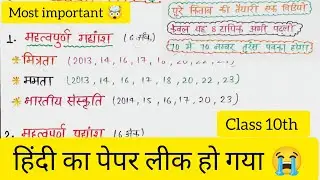 Most important
पूरे किताब की तैयारी एक विडियो
केवल यह 8 टापिक अभी पढलो
70 में 70 नम्बर तुरंत पक्का होगा
1. महत्वपूर्ण गद्यांश (6 अंक)
→ मित्रता (2013, 14, 16, 17, 18,
→ ममता (2014, 16, 17, 18, 20, 22, 23)
→ भारतीय संस्कृति (2014, 15, 16, 17, 20, 23)
Class 10th
2. महत्वपूर्ण पद्यांश (6 अंक)
हिंदी का पेपर लीक हो गया 😭